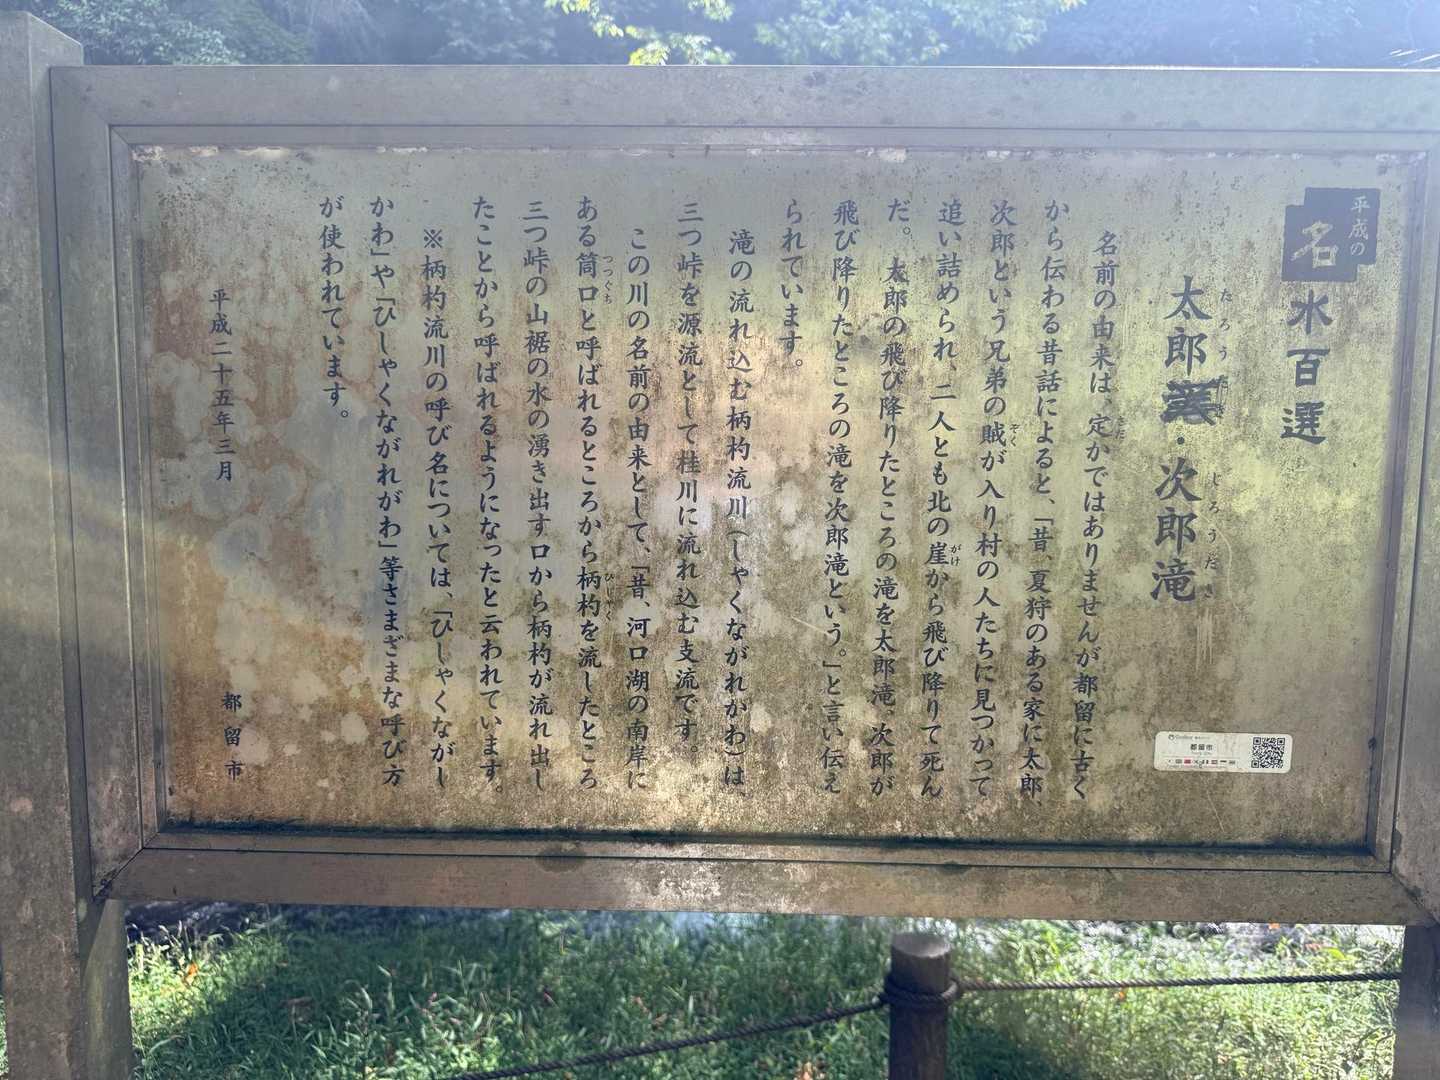 平成の
名水百選
太郎滝・次郎滝
たろうだき
じろうだき
名前の由来は、定かではありませんが都留に古く
から伝わる昔話によると、「昔、夏狩のある家に太郎、
次郎という兄弟の賊が入り村の人たちに見つかって
追い詰められ、二人とも北の崖から飛び降りて死ん
だ。太郎の飛び降りたところの滝を太郎滝、次郎が
飛び降りたところの滝を次郎滝という。」と言い伝え
られています。
滝の流れ込む柄杓流川(しゃくながれかわ)は、
三つ峠を源流として桂川に流れ込む支流です。
この川の名前の由来として、「昔、河口湖の南岸に
ある筒口と呼ばれるところから柄杓を流したところ
三つ峠の山裾の水の湧き出す口から柄杓が流れ出し
たことから呼ばれるようになったと云われています。
※柄杓流川の呼び名については、「ひしゃくながし
かわ」や「ひしゃくながれがわ」等さまざまな呼び方
が使われています。
平成二十五年三月
都留市
さだ
ぞく
がけ
つつぐち
ひしゃく
都留市